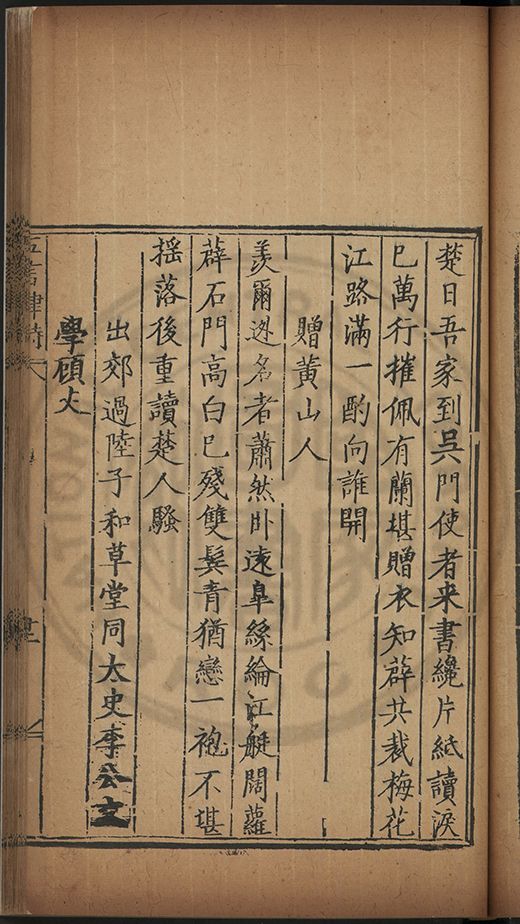 楚日吾家到吳門使者来書纔片紙讀淚
已萬行摧佩有蘭堪贈衣知薜共裁梅花
江路滿一酌向誰開
贈黃山人
羨爾逃名者蕭然卧遠臯絲綸江艇闊蘿
薜石門高白已殘雙鬂青猶戀一袍不堪
揺落後重讀楚人騷
出郊過陸子和草堂同太史李公文
學顧丈
五言律詩